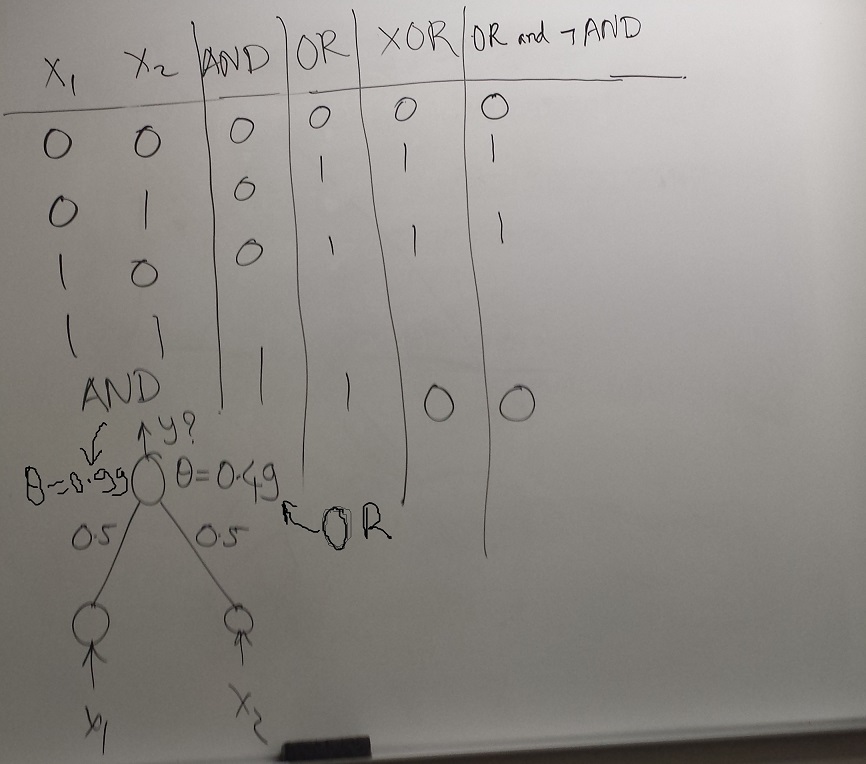 X₁ X₂ AND OR XOR OR and ¬ AND
0 0 0 0 0 0
0 1 0 1 1 1
1 0 0 1 1 1
1 1 1 1 0 0
AND
y?
θ=0.99 θ=0.49
OR
0.5 0.5
X₁ X₂